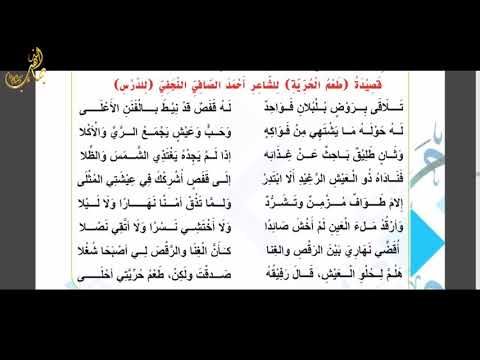 قَصِيْدَةُ (طَعْمُ الْحُرِّيَّةِ) لِلشَّاعِرِ أَحْمَدَ الصَّافِيِّ النَّجَفِيِّ (لِلدَّرْسِ)
تَلَاقَى بِرَوْضٍ بُلْبُلَانِ فَوَاحِدٌ لَهُ قَفَصٌ قَدْ نِيْطَ بِالْفَنَنِ الْأَعْلَى
لَهُ حَوْلَهُ مَا يَشْتَهِي مِنْ فَوَاكِهٍ وَحَبٌّ وَعَيْشٌ يَجْمَعُ الرِّيَّ وَالْأَكْلَا
وَثَانٍ طَلِيْقٌ بَاحِثٌ عَنْ غِذَائِهِ إِذَا لَمْ يَجِدْهُ يَغْتَذِي الشَّمْسَ وَالظِّلَّا
فَنَادَاهُ ذُو الْعَيْشِ الرَّغِيْدِ أَلَا ابْتَدِرْ إِلَى قَفَصٍ أُشْرِكْكَ فِي عِيْشَتِي الْمُثْلَى
إِلَامَ طَوَافٌ مُزْمِنٌ وَتَشَرُّدٌ وَلَمَّا تَذُقْ أَمْنًا نَهَارًا وَلَا لَيْلَا
وَأَرْقُدُ مِلْءَ الْعَيْنِ لَمْ أَخْشَ صَائِدًا وَلَا أَخْتَشِي نَسْرًا وَلَا أَتَّقِي نَصْلَا
أُقَضِّي نَهَارِي بَيْنَ الرَّقْصِ وَالْغِنَا كَأَنَّ الْغِنَا وَالرَّقْصَ لِي أَصْبَحَا شُغْلَا
هَلُمَّ لِحُلْوِ الْعَيْشِ، قَالَ رَفِيْقُهُ صَدَقْتَ وَلَكِنْ، طَعْمُ حُرِّيَّتِي أَحْلَى